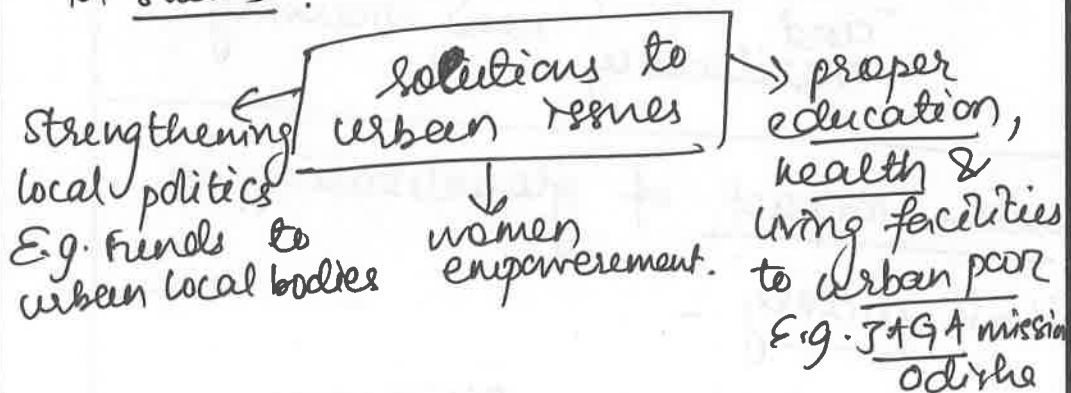 solutions to
urban issues
Strengthening
local politics
E.g. Funds to
urban local bodies
women
empowerement.
proper
education,
health &
living facilities
to Urban poor
E.g. JAGA missio
Odisha